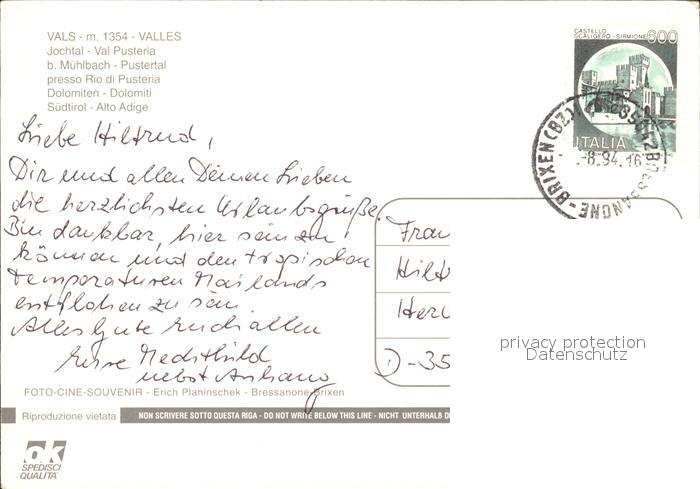 VALS - m. 1354 - VALLES
Jochtal - Val Pusteria
b. Mühlbach - Pustertal
presso Rio di Pusteria
Dolomiten - Dolomiti
Südtirol - Alto Adige
CASTELLO
SCALIGERO - SIRMIONE 600
ITALIA
BRIXEN (BZ)
-8.94.16
Liebe Hiltrud,
Dir und allen Deinen Lieben
die herzlichsten Urlaubsgrüße.
Bin dankbar, hier sein zu
können und den tropischen
Temperaturen Mailands
entflohen zu sein.
Alles Gute Euch allen
Eure Mechthild
nebst Anhang
Frau
Hilt
Her
D-35
privacy protection
Datenschutz
FOTO-CINE-SOUVENIR - Erich Planinschek - Bressanone-Brixen
Riproduzione vietata
NON SCRIVERE SOTTO QUESTA RIGA - DO NOT WRITE BELOW THIS LINE - NICHT UNTERHALB D
ok
SPEDISCI
QUALITA'